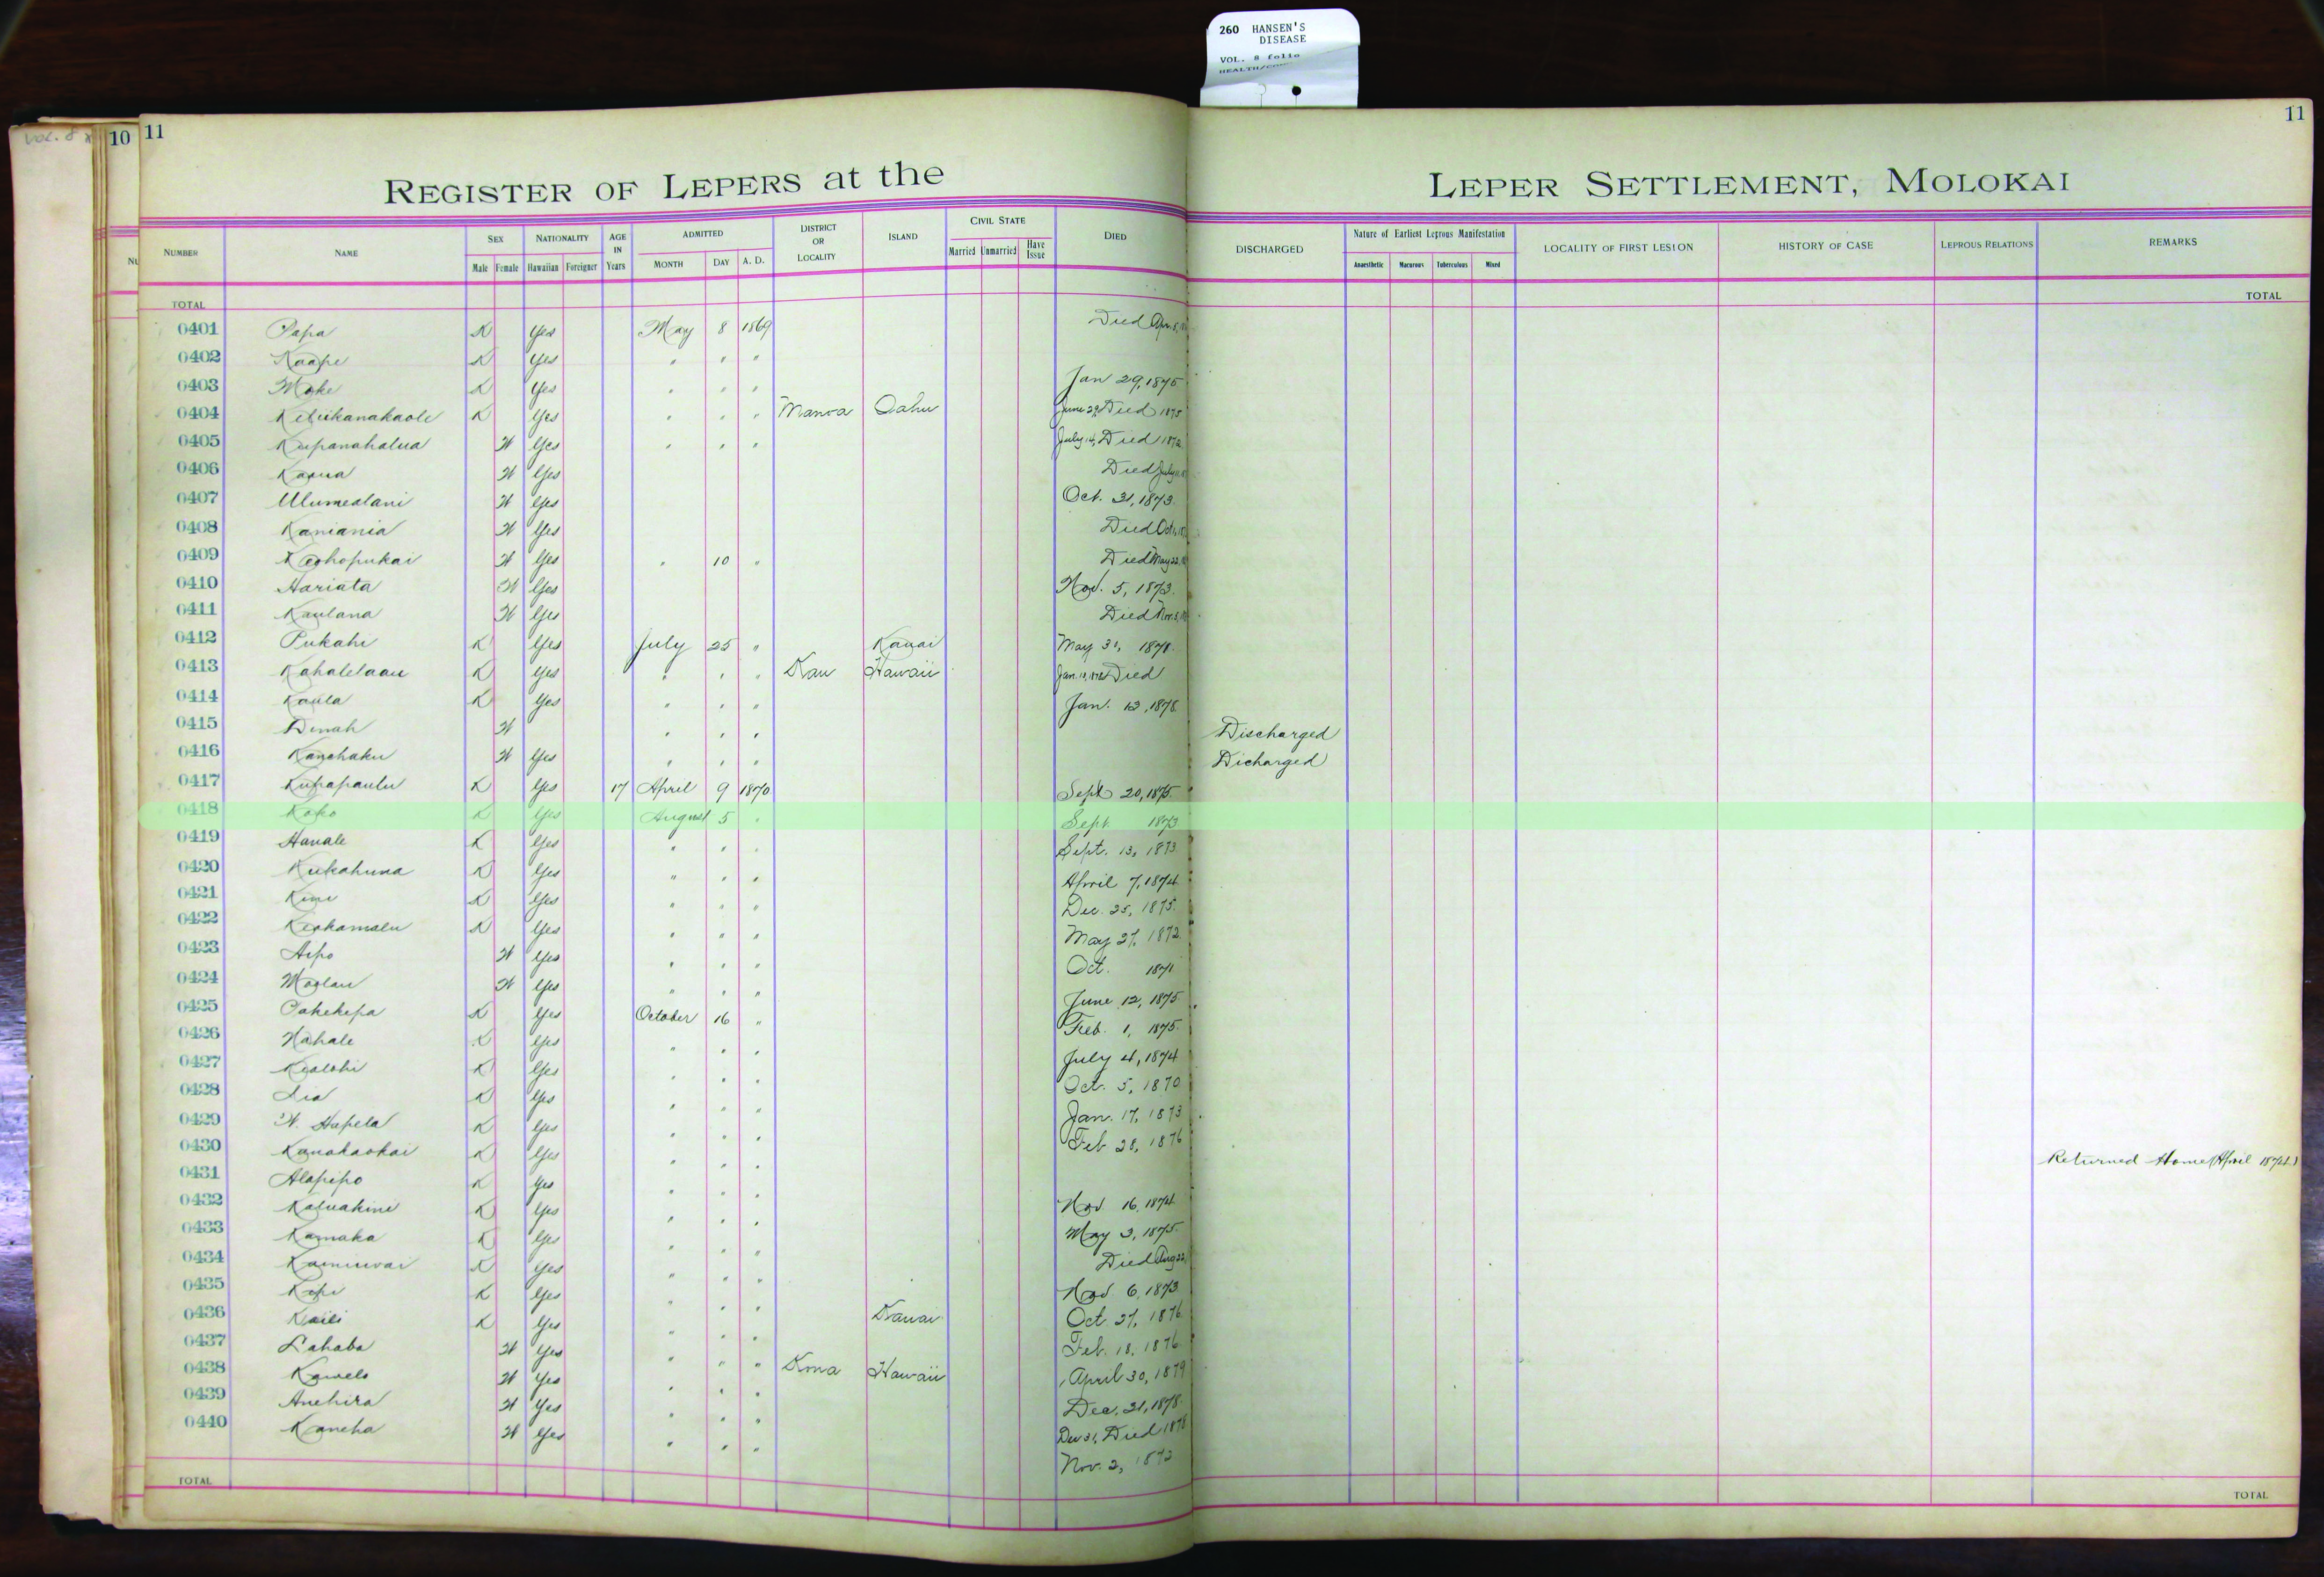 260 HANSEN'S
DISEASE
VOL. 8 folio
VOL. 8
10 11
11
REGISTER OF LEPERS at the LEPER SETTLEMENT, MOLOKAI
NUMBER NAME SEX Male Female NATIONALITY Hawaiian Foreigner AGE IN Years ADMITTED MONTH DAY A. D. DISTRICT OR LOCALITY ISLAND CIVIL STATE Married Unmarried Have Issue DIED DISCHARGED Nature of Earliest Leprous Manifestation Anaesthetic Macurous Tuberculous Mixed LOCALITY OF FIRST LESION HISTORY OF CASE LEPROUS RELATIONS REMARKS
TOTAL TOTAL
0401 Papa K Yes May 8 1869 Died Apr. 8,
0402 Kaape K Yes " " "
0403 Moke K Yes " " " Jan 29, 1875
0404 Keliikanakaole K Yes " " " Manoa Oahu June 29, Died 1875
0405 Kupanahalua W Yes " " " July 14, Died 1872
0406 W Yes Died July
0407 Ulumealani W Yes Oct. 31, 1873
0408 Kaniania W Yes Died Oct
0409 Keohopukai W Yes " 10 " Died May 22,
0410 Hariata W Yes Nov. 5, 1873.
0411 Kaulana W Yes Died Nov. 3,
0412 Pukahi K Yes July 25 " Kauai May 31, 1871.
0413 Kahalelaau K Yes " " " Kau Hawaii Jan. Died
0414 Kaula K Yes " " " Jan. 12, 1878.
0415 Dinah W " " " Discharged
0416 Kanehaku W Yes " " " Dicharged
0417 Kupapaulu K Yes 17 April 9 1870 Sept 20, 1875.
0418 Koko K Yes August 5 " Sept 1873
0419 Hanale K Yes " " " Sept. 13, 1873
0420 Kukahuna K Yes " " " April 7, 1874
0421 Kini K Yes " " " Dec. 25, 1875.
0422 Keohamalu K Yes " " " May 27, 1872
0423 Aipo W Yes " " " Oct. 1871
0424 Moolau W Yes " " " June 12, 1875
0425 Pakekepa K Yes October 16 " Feb. 1, 1875.
0426 Nahale K Yes " " " July 4, 1874
0427 Kealohi K Yes " " " Oct. 5, 1870
0428 Lia K Yes " " " Jan. 17, 1873
0429 W. Hapela K Yes " " " Feb 28, 1876
0430 Kanakaokai K Yes " " " Returned Home (April 1874)
0431 Alapipo K Yes " " " Nov 16, 1874
0432 Kaluakini K Yes " " " May 3, 1875.
0433 Kamaka K Yes " " " Died Aug 22,
0434 Kainiwai K Yes " " " Nov 6, 1873
0435 Kepi K Yes " " " Oct 27, 1876
0436 Kaili K Yes " " " Kauai Feb. 18, 1876
0437 Lahaba W Yes " " "
0438 Kawelo W Yes " " " Kona Hawaii April 30, 1879
0439 Anehira W Yes " " " Dec. 31, 1878.
0440 Kaneha W Yes " " " Dec 31, Died 1878
Nov. 2, 1872
TOTAL TOTAL